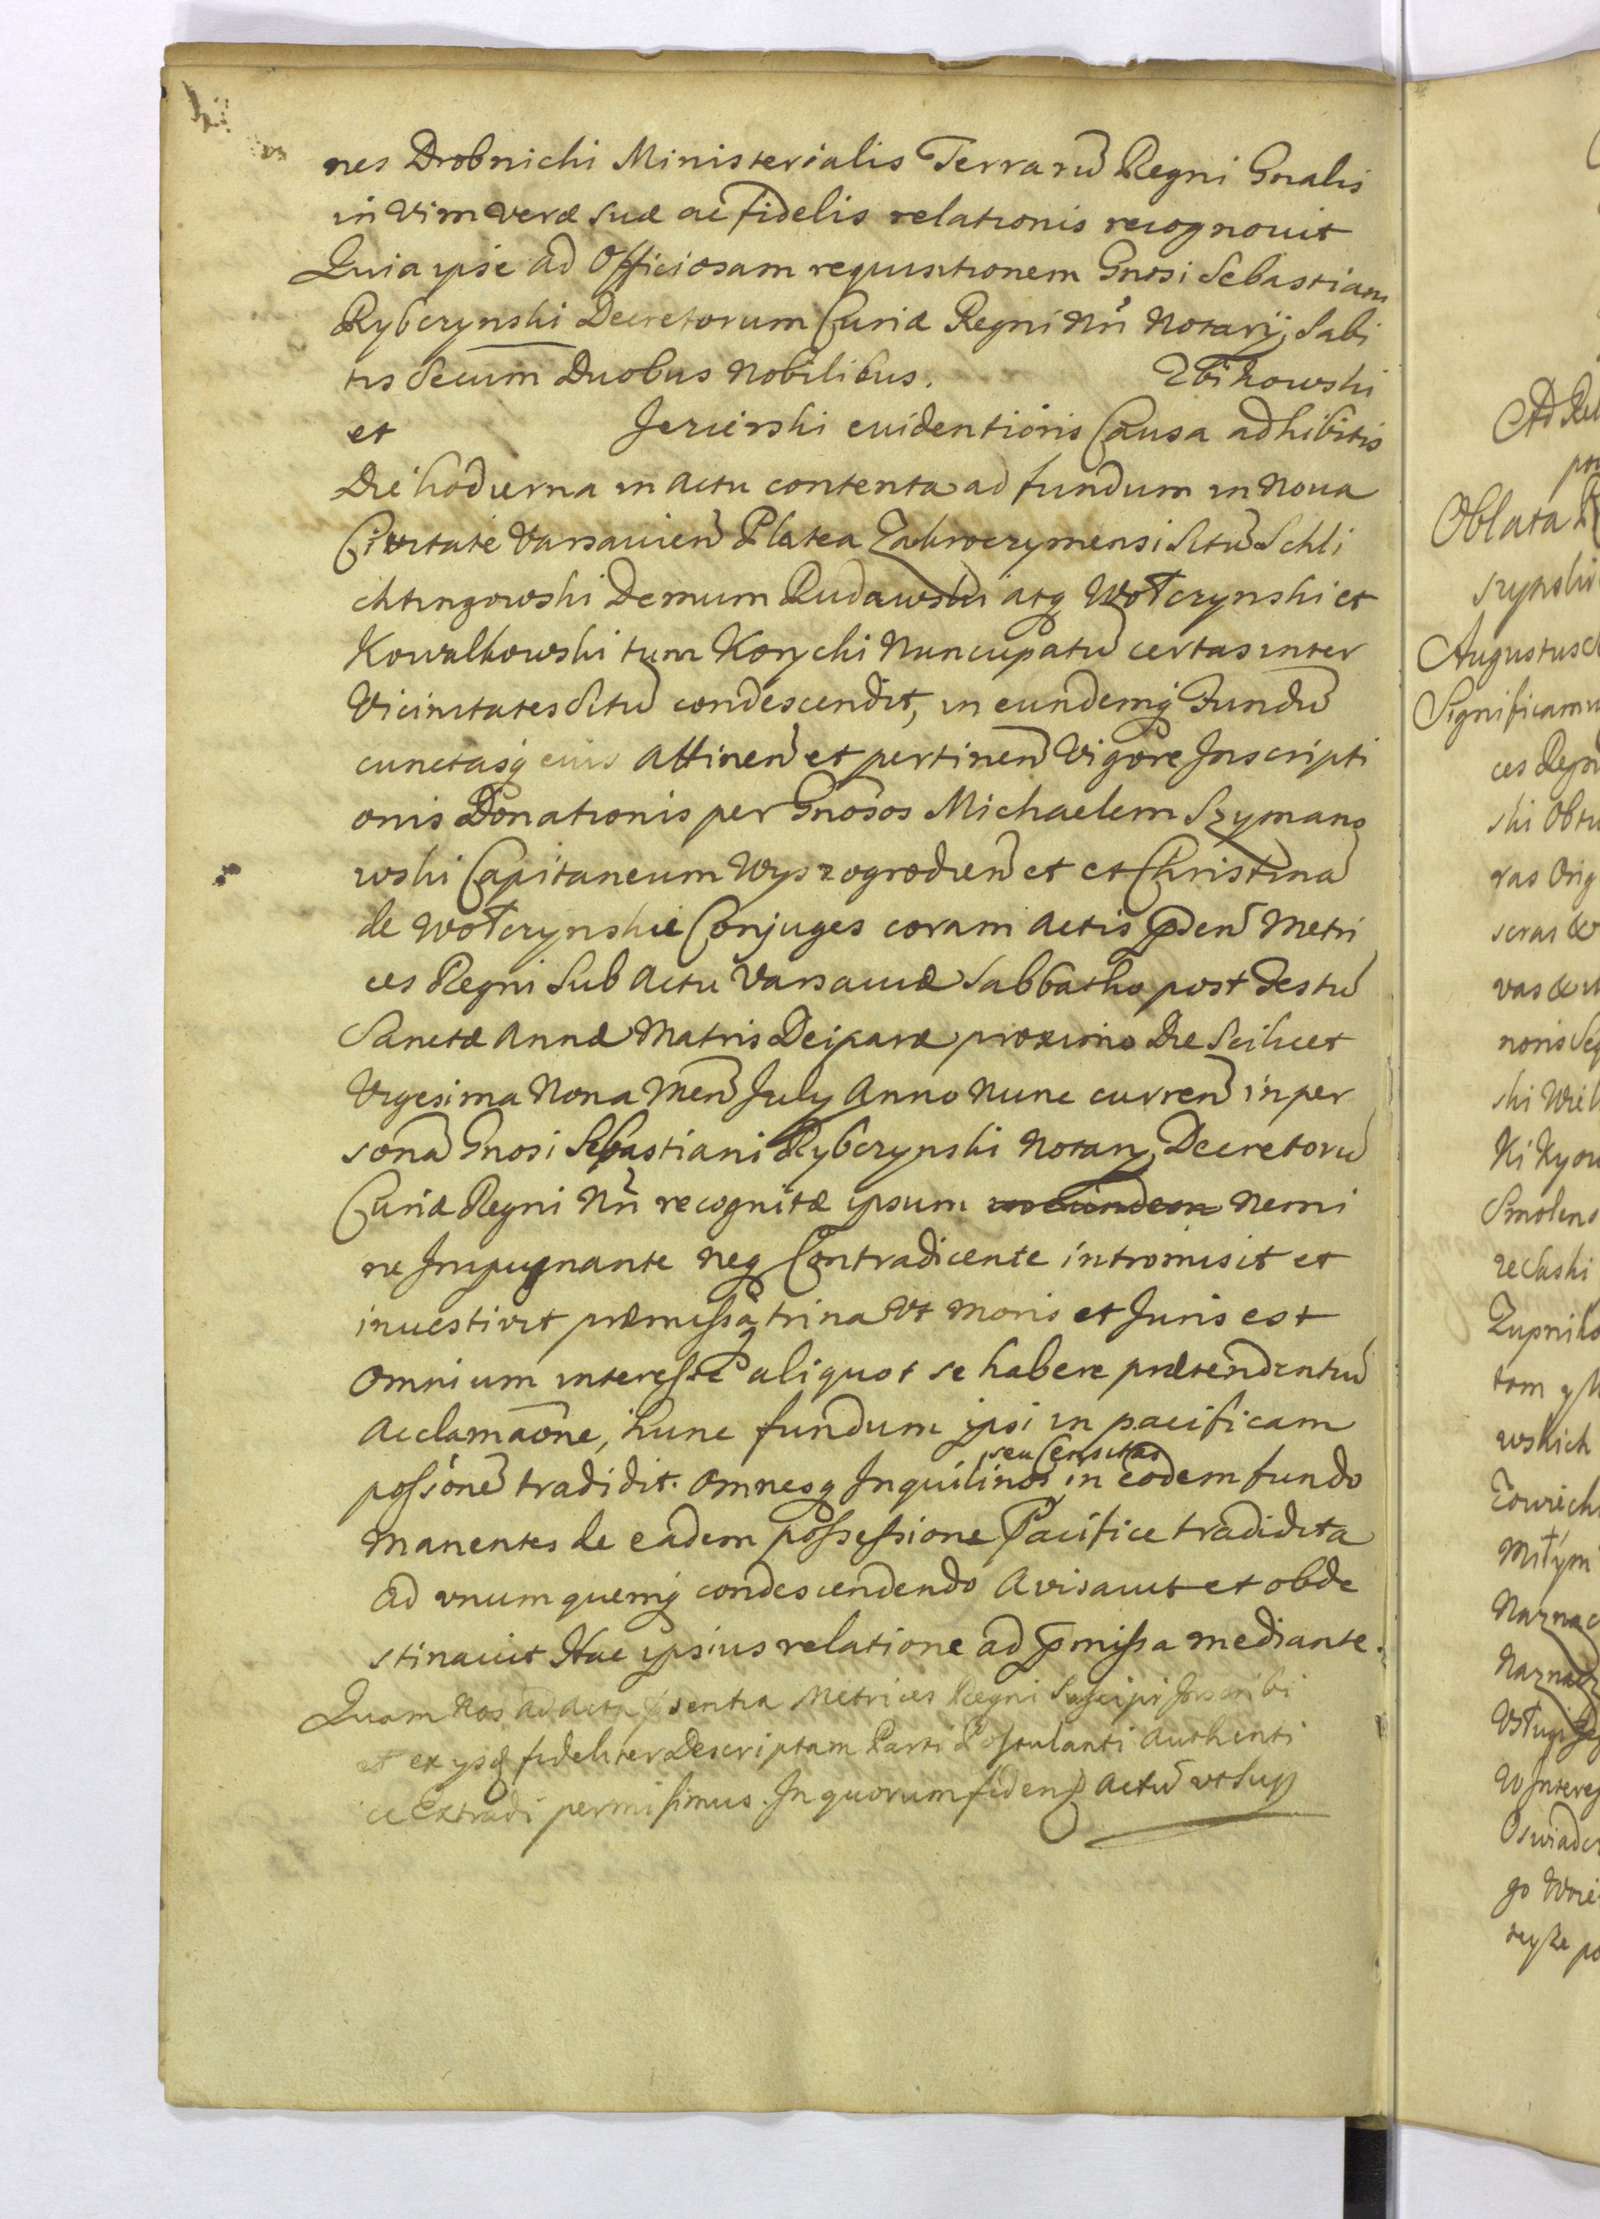 nes Drobnicki Ministerialis Terrarū Regni Gnalis
in vim veræ suæ ac fidelis relationis recognovit
Quia ipse ad Officiosam requisitionem Gnosi Sebastiani
Rybczynski Decretorum Curiæ Regni Nri Notarij, habi
tis secum Duobus Nobilibus. Zbikowski
et Jezierski evidentioris Causa adhibitis
Die hodierna in actu contenta ad fundum in Nova
Civitate Varsavien Platea Zakroczymensi sitū Schli
chtingowski Demum Rudawski atq Wołczynski et
Kowalkowski tum Korycki Nuncupatū certas inter
Vicinitates sitū condescendit, in eundemq Fundū
cunctasq eius attinen et pertinen Vigore Inscripti
onis Donationis per Gnosos Michaelem Szymano
wski Capitaneum Wyszogrodien et et Christina
de Wołczynskie Conjuges coram actis pnden Metri
ces Regni sub actu Varsaviæ Sabbatho post Festū
Sanctæ Annæ Matris Deiparæ proximo Die Scilicet
Vigesima Nona Men July Anno Nunc curren in per
sona Gnosi Sebastiani Rybczynski Notary Decretorū
Curiæ Regni Nri recognitæ ipsum in eundem Nemi
ne Impugnante neq Contradicente intromisit et
investivit præmissaq trina Vt moris et Juris est
omnium interesse aliquot se habere prætendentiū
acclamaone, hunc fundum ipsi in pacificam
possione tradidit. omnesq Inquilinos seu Censitas in eodem fundo
manentes de eadem possessione Pacifice tradidita
ad vnum quemq condescendendo avisavit et obde
stinavit Hac ipsius relatione ad pmissa mediante.
Quam Nos ad acta psentia Metrices Regni Suscipi Inscribi
et ex ysd fideliter Descriptam Parti Postulanti authenti
ce Extradi permisimus. In quorum fidem actū vt sup

Ad Rel
Oblata R
szynski
Augustus
Significamu
ces Regni
ski Obtu
ras Orig
noris Seg
ski Wiel
Ki Kyow
Smolens
Zupniko
tom y
wskich
Miłym
Naznac
Naznac
W Interes
Oswiadcz
go Wie